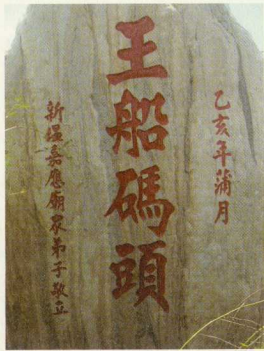 乙亥年蒲月
王船碼頭
新塭嘉應廟眾弟子敬立